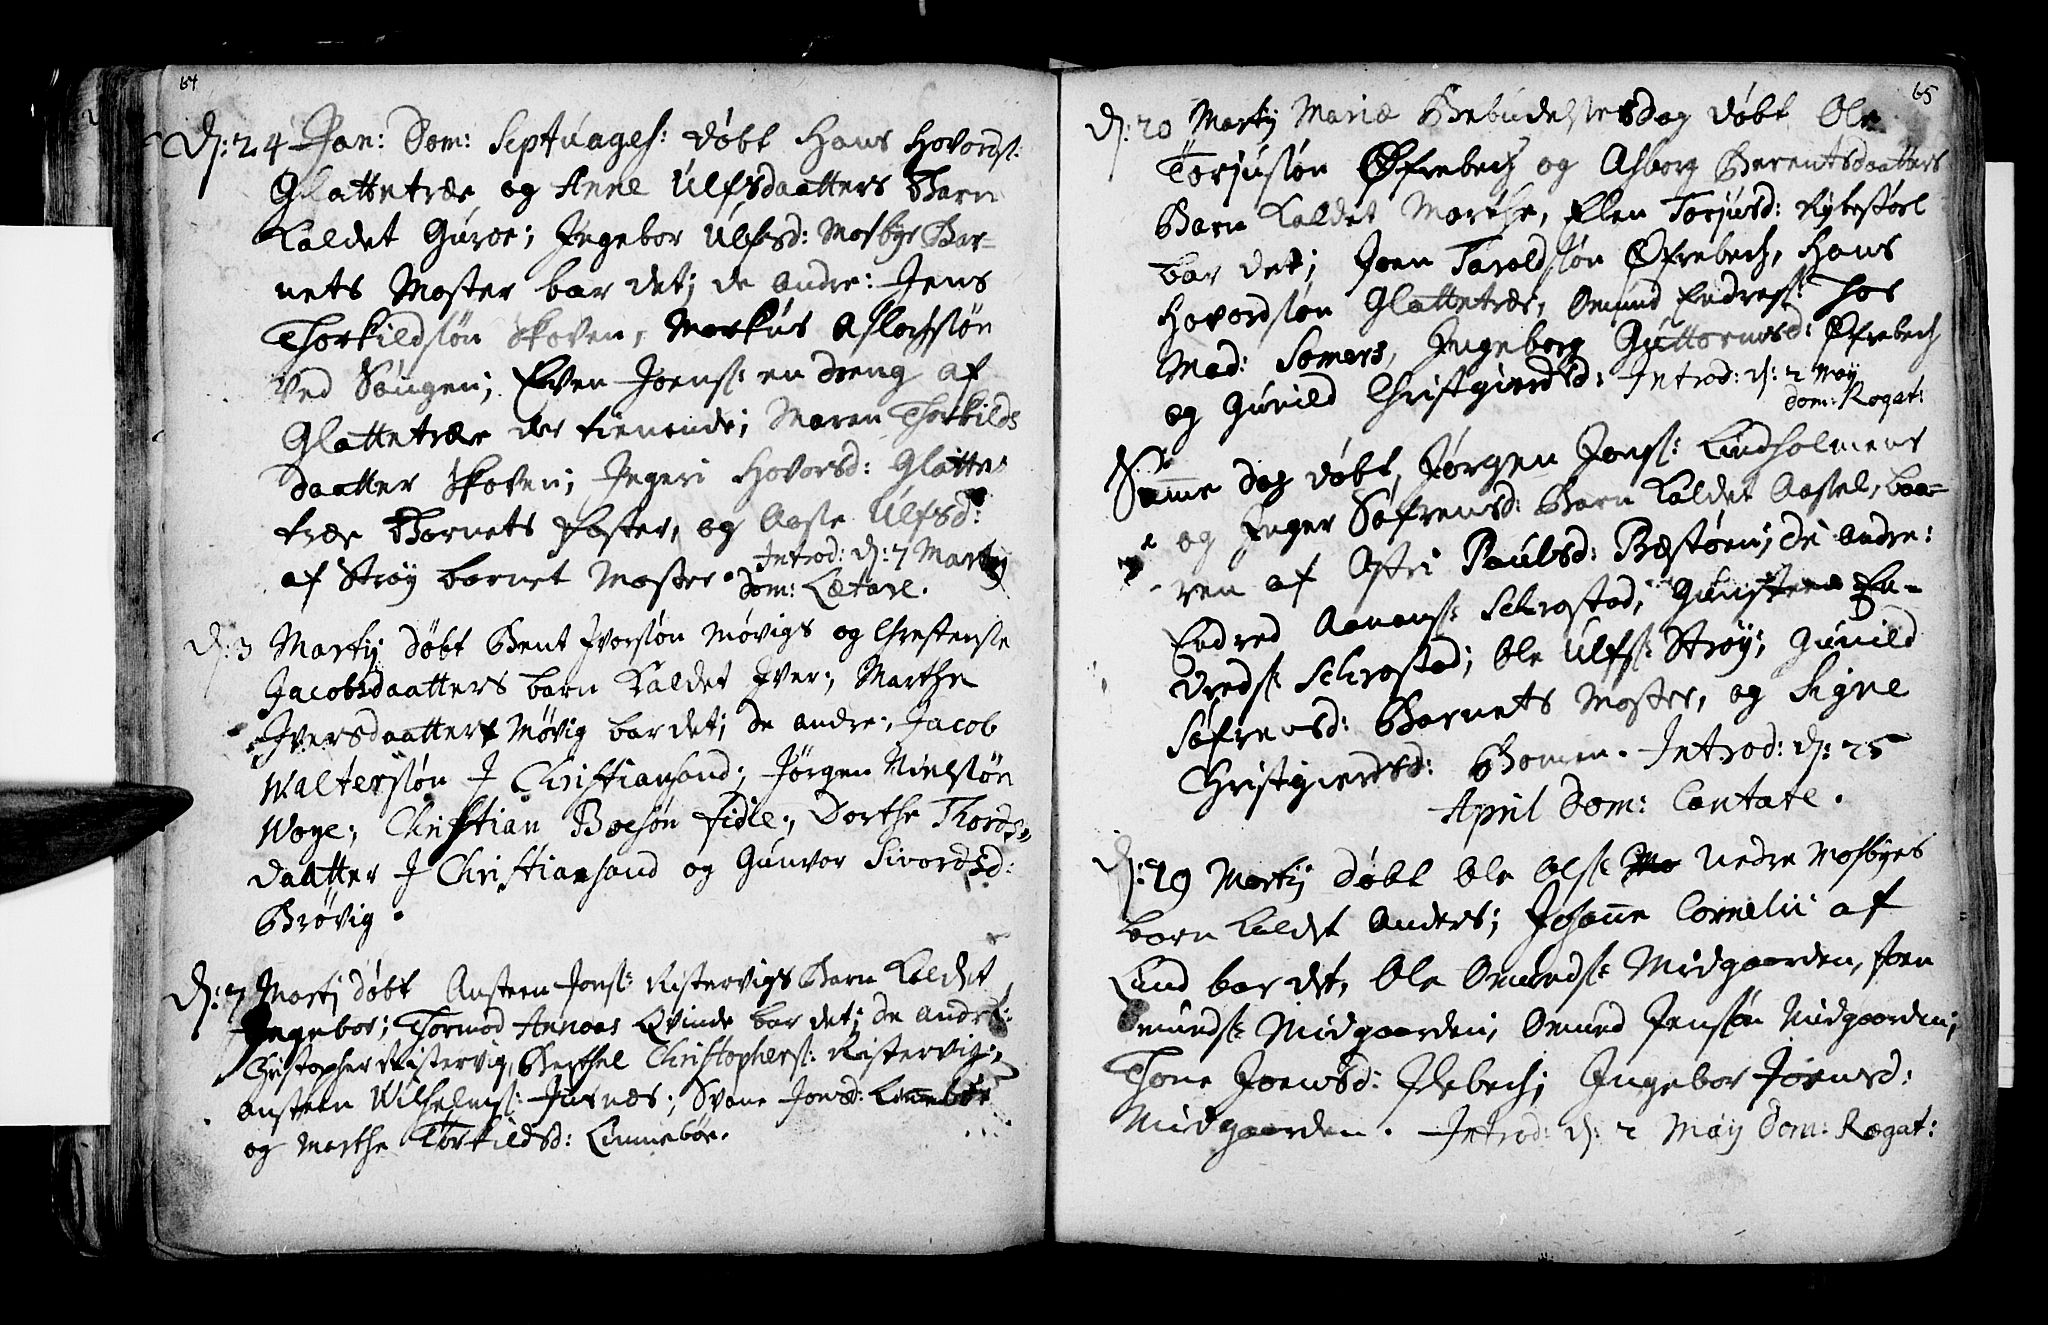 64
D: 24 Jan: Dom: Septuages: døbt Hans Hovords:
Glattetræe og Anne Ulfsdaatters Barn
kaldet Guroe; Ingebor Ulfsd: Mosbye Bar-
nets Moster bar det; de andre: Jens
Thorkildsøn Skoven, Markus Aslachsøn
ved Søngen; Even Joens: en dreng af
Glattetræe der tienende; Maren Thorkilds
daatter Skoven; Ingeri Hovorsd: Glatte-
træe Barnets Faster, og Aase Ulfsd:
af Strøy barnet Moster. Introd: d: 7 Martij
Dom: Lætare.
D: 3 Martij døbt Bent Iversøn Møvigs og Chrestense
Jacobsdaatters barn kaldet Iver; Marthe
Iversdaatter Møvig bar det; de andre: Jacob
Waltersøn I Christiansand; Jørgen Nielsøn
Woge; Christian Boesøn Fidie; Dorthe Thords-
daatter I Christiansand og Gunvor Sivordsd:
Brøvig.
D: 7 Martj døbt Ansteen Jons: Ristervigs Barn kaldet
Ingebor; Tormod Annoas Qvinde bar det; de andre:
Christopher Ristervig, Berthel Christophers: Ristervig;
ansteen Wilhelms: Jusnæs; Svane Jonsd: Linnebøe
og Marthe Torkildsd: Linnebøe.
65
D: 20 Martij Mariæ Bebudelsesdag døbt Ole
Torjusøn Øfrebech og Asborg Berentsdaatters
Barn kaldet Marthe, Ellen Torjusd: Rybestøel
bar det; Joen Taraldsøn Øfrebech, Hans
Hovordsøn Glattetræe, Omund Endres: hos
Mad: Somers, Ingeborg Guttormsd: Øfrebech
og Gunild Christgierdsd: Introd: d: 2 Maij
Dom: Rogat:
Samme dag døbt, Jørgen Jons: Lindholmens
og Inger Søfrensd: Barn kaldet Aasel, baa-
ren af Astri Paulsd: Bæstøen; de andre:
Endred Aanens: Schrostad; Gunsteen En-
dreds: Schrostad; Ole Ulfs: Strøy; Gunild
Søfrensd: Barnets Moster, og Signe
Christgierdsd: Bomen. Introd: d: 25
April Dom: Cantate.
D: 29 Martij døbt Ole Ols: Nedre Mosbyes
barn kaldet Anders; Johanne Cornelii af
Lund bar det, Ole Omunds: Midgaarden, Joen
Omunds: Midgaarden; Omund Jensøn Midgaarden;
Thone Joensd: Idebech; Ingebor Joensd:
Midgaarden. Introd: d: 2 Maij Dom: Rogat: